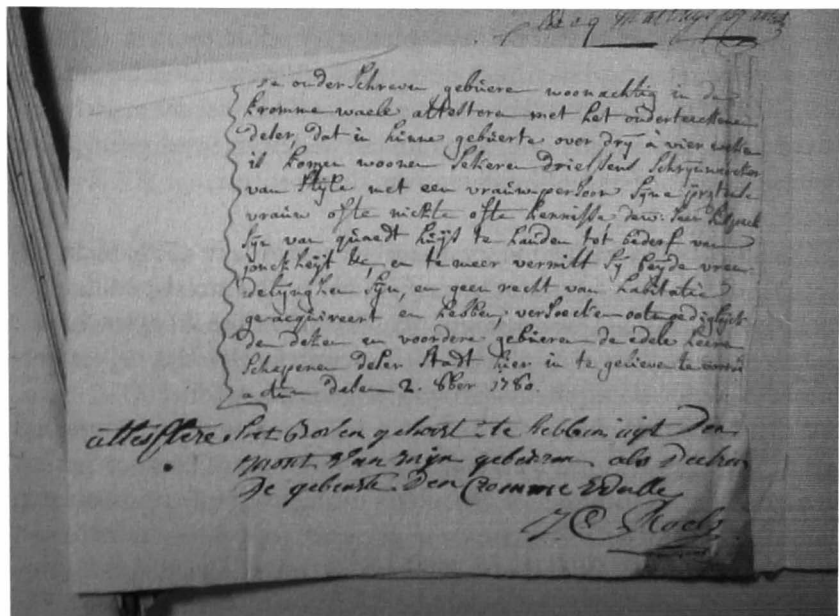 de onderschreven gebuere woonachtig in de
kromme waele attesteren met het onderteecken
deser, dat in hunne gebuerte over dry à vier weken
is komen woonen sekeren driessens schrynwercker
van style met een vrauwpersoon syne
vrauw ofte nichte ofte kennisse
syn van quaedt huys te hauden tot bederf van
jonckheyt &c, en te meer vermits sy beyde vrem
delynghen syn, en geen recht van habitatie
geacquireert en hebben, versoecken
den deken en voordere gebueren de edele heeren
schepenen deser stadt hier in te gelieven te
actum desen 2. 8ber 1780.
attestere het boven gehoort te hebben uyt den
mont van mijn gebueren als deeken
de gebuerte den Cromme Walle